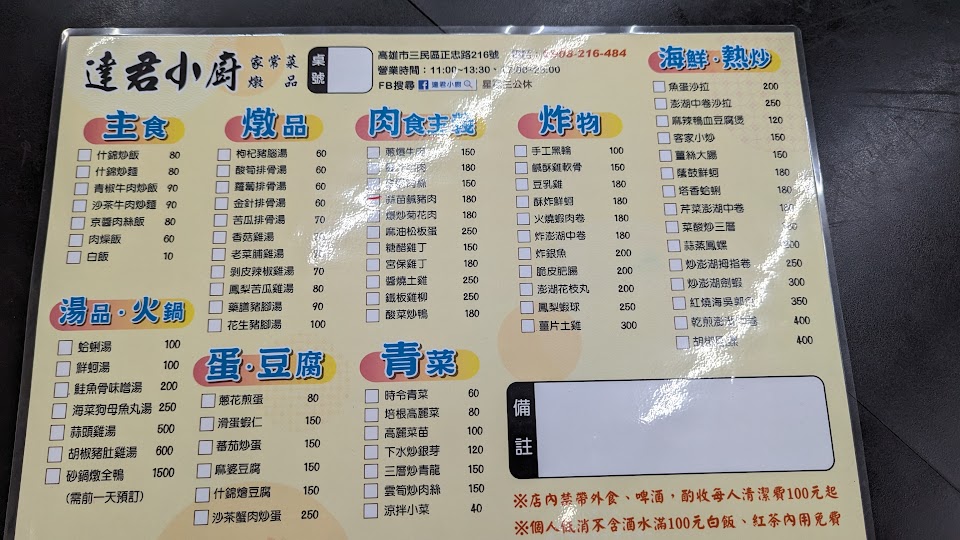 達君小廚
家常菜
燉品
桌號
高雄市三民區正忠路216號
08-216-484
營業時間：11:00~13:30、
FB搜尋 達君小廚
公休
主食
什錦炒飯 80
什錦炒麵 80
青椒牛肉炒飯 90
沙茶牛肉炒麵 90
京醬肉絲飯 80
肉燥飯 60
白飯 10
湯品·火鍋
蛤蜊湯 100
鮮蚵湯 100
鮭魚骨味噌湯 200
海菜狗母魚丸湯 250
蒜頭雞湯 500
胡椒豬肚雞湯 600
砂鍋燉全鴨 1500
(需前一天預訂)
燉品
枸杞豬腦湯 60
酸筍排骨湯 60
蘿蔔排骨湯 60
金針排骨湯 60
苦瓜排骨湯 70
香菇雞湯 70
老菜脯雞湯 70
剝皮辣椒雞湯 70
鳳梨苦瓜雞湯 80
藥膳豬腳湯 90
花生豬腳湯 100
蛋·豆腐
蔥花煎蛋 80
滑蛋蝦仁 150
蕃茄炒蛋 150
麻婆豆腐 150
什錦燴豆腐 150
沙茶蟹肉炒蛋 250
肉食主義
蔥爆牛肉 150
180
150
蒜苗鹹豬肉 180
爆炒菊花肉 180
麻油松板蛋 250
糖醋雞丁 150
宮保雞丁 180
醬燒土雞 250
鐵板雞柳 250
酸菜炒鴨 180
青菜
時令青菜 60
培根高麗菜 80
高麗菜苗 100
下水炒銀芽 120
三層炒青龍 150
雲筍炒肉絲 150
涼拌小菜 40
炸物
手工黑輪 100
鹹酥雞軟骨 150
豆乳雞 180
酥炸鮮蚵 180
火燒蝦肉卷 180
炸澎湖中卷 180
炸銀魚 200
脆皮肥腸 200
澎湖花枝丸 200
鳳梨蝦球 250
薑片土雞 300
海鮮·熱炒
魚蛋沙拉 200
澎湖中卷沙拉 250
麻辣鴨血豆腐煲 120
客家小炒 150
薑絲大腸 150
蔭豉鮮蚵 180
塔香蛤蜊 180
芹菜澎湖中卷 180
菜酸炒三層
蒜蒸鳳螺
炒澎湖拇指卷 250
炒澎湖劍蝦 300
紅燒海吳郭 350
乾煎澎湖 400
胡椒 400
備註
※店內禁帶外食、啤酒，酌收每人清潔費100元起
※個人低消不含酒水滿100元白飯、紅茶內用免費